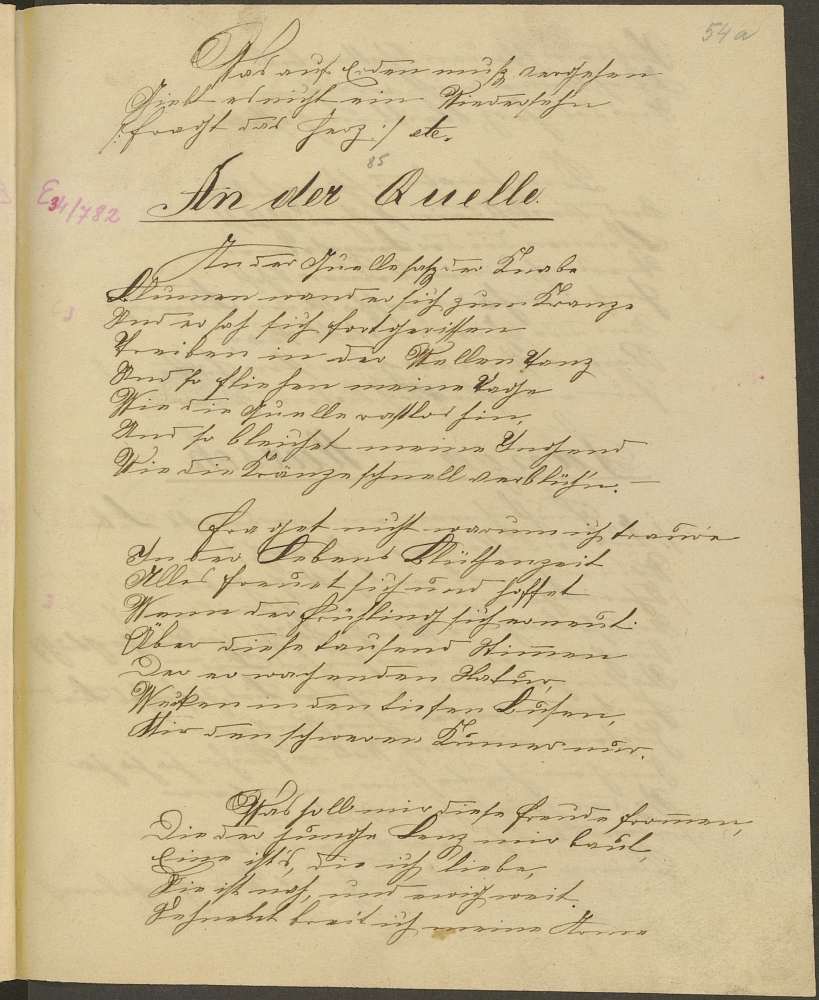 54a
Was auf Erden muß vergehen
Giebt es nicht ein Wiedersehn
/: fragt das Herz :/ etc.
85
An der Quelle.
E 34/782
An der Quelle saß der Knabe
Blumen wand er sich zum Kranze
Und er sah sich fortgerissen
Treiben in der Wellen Tanz
Und so fliehen meine Tage
Wie die Quelle rastlos hin,
Und so bleichet meine Jugend
Wie die Kränze schnell verblühn. —
Fraget nicht warum ich traure
In der Lebens Blüthenzeit
Alles freuet sich und hoffet
Wenn der Frühling sich erneut.
Aber diese tausend Stimmen
Der erwachenden Natur,
Wecken in den tiefen Busen,
Mir den schweren Kumer nur.
Was soll mir diese Freude frommen,
Die der junge Lenz mir baut,
Eine ist's, die ich liebe,
Sie ist nah, und ewig weit.
Sehnend breit ich meine Arme